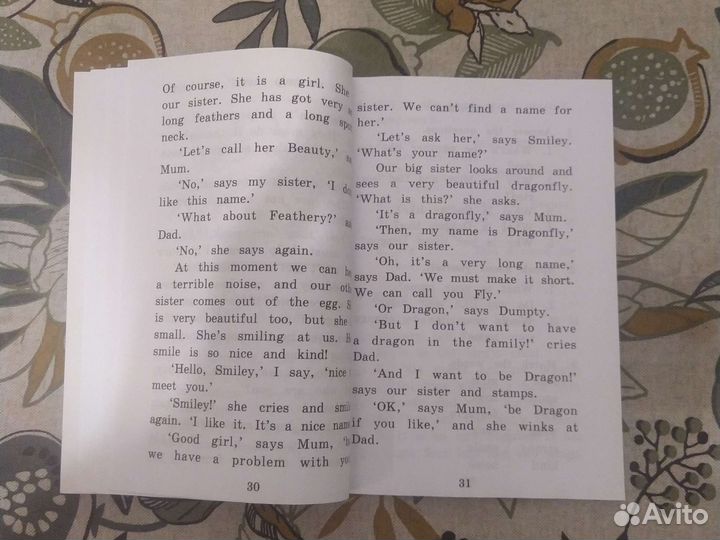 Of course, it is a girl. She
our sister. She has got very
long feathers and a long
neck.
‘Let's call her Beauty,’
Mum.
‘No,’ says my sister, ‘I
like this name.’
‘What about Feathery?’
Dad.
‘No,’ she says again.
At this moment we can
a terrible noise, and our
sister comes out of the egg.
is very beautiful too, but she
small. She's smiling at us.
smile is so nice and kind!
‘Hello, Smiley,’ I say, ‘nice
meet you.’
‘Smiley!’ she cries and
again. ‘I like it. It's a nice
‘Good girl,’ says Mum,
we have a problem with
30
sister. We can't find a name for
her.’
‘Let's ask her,’ says Smiley.
‘What's your name?’
Our big sister looks around and
sees a very beautiful dragonfly.
‘What is this?’ she asks.
‘It's a dragonfly,’ says Mum.
‘Then, my name is Dragonfly,’
says our sister.
‘Oh, it's a very long name,’
says Dad. ‘We must make it short.
We can call you Fly.’
‘Or Dragon,’ says Dumpty.
‘But I don't want to have
a dragon in the family!’ cries
Dad.
‘And I want to be Dragon!’
says our sister and stamps.
‘OK,’ says Mum, ‘be Dragon
if you like,’ and she winks at
Dad.
31
Avito